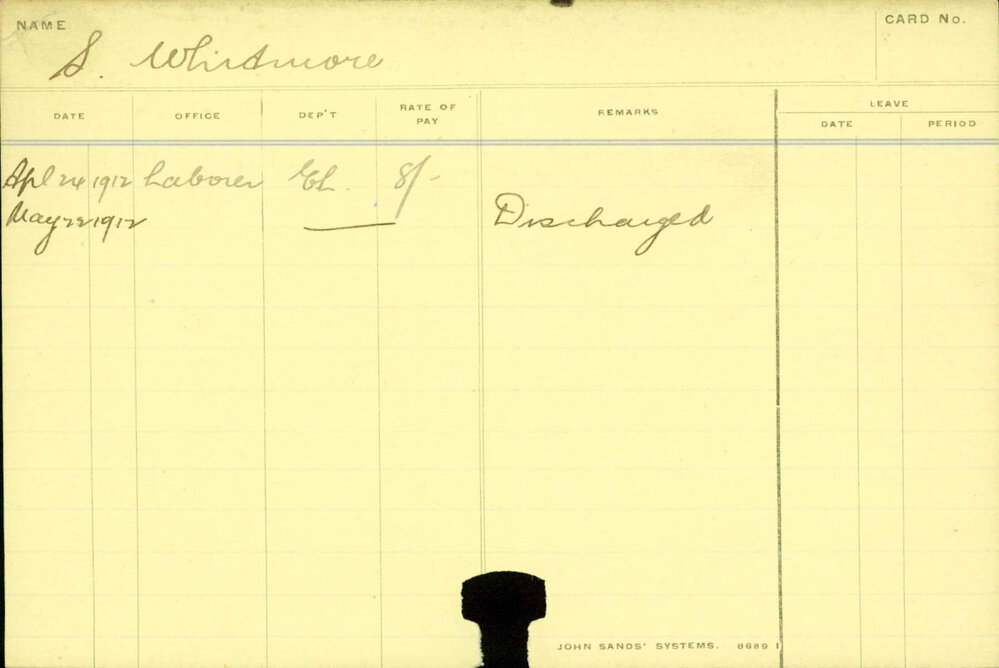 NAME
S. Whitmore
CARD No.
DATE OFFICE DEP'T RATE OF PAY REMARKS LEAVE
DATE PERIOD
Apl 24 1912 Laborer EL. 8/-
May 22 1912 Discharged
JOHN SANDS' SYSTEMS. 8689